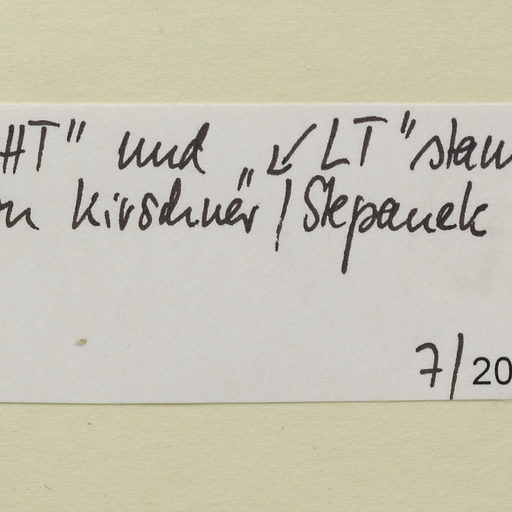 HT" und „↙LT" stam
n Kirschner / Stepanek
7/20